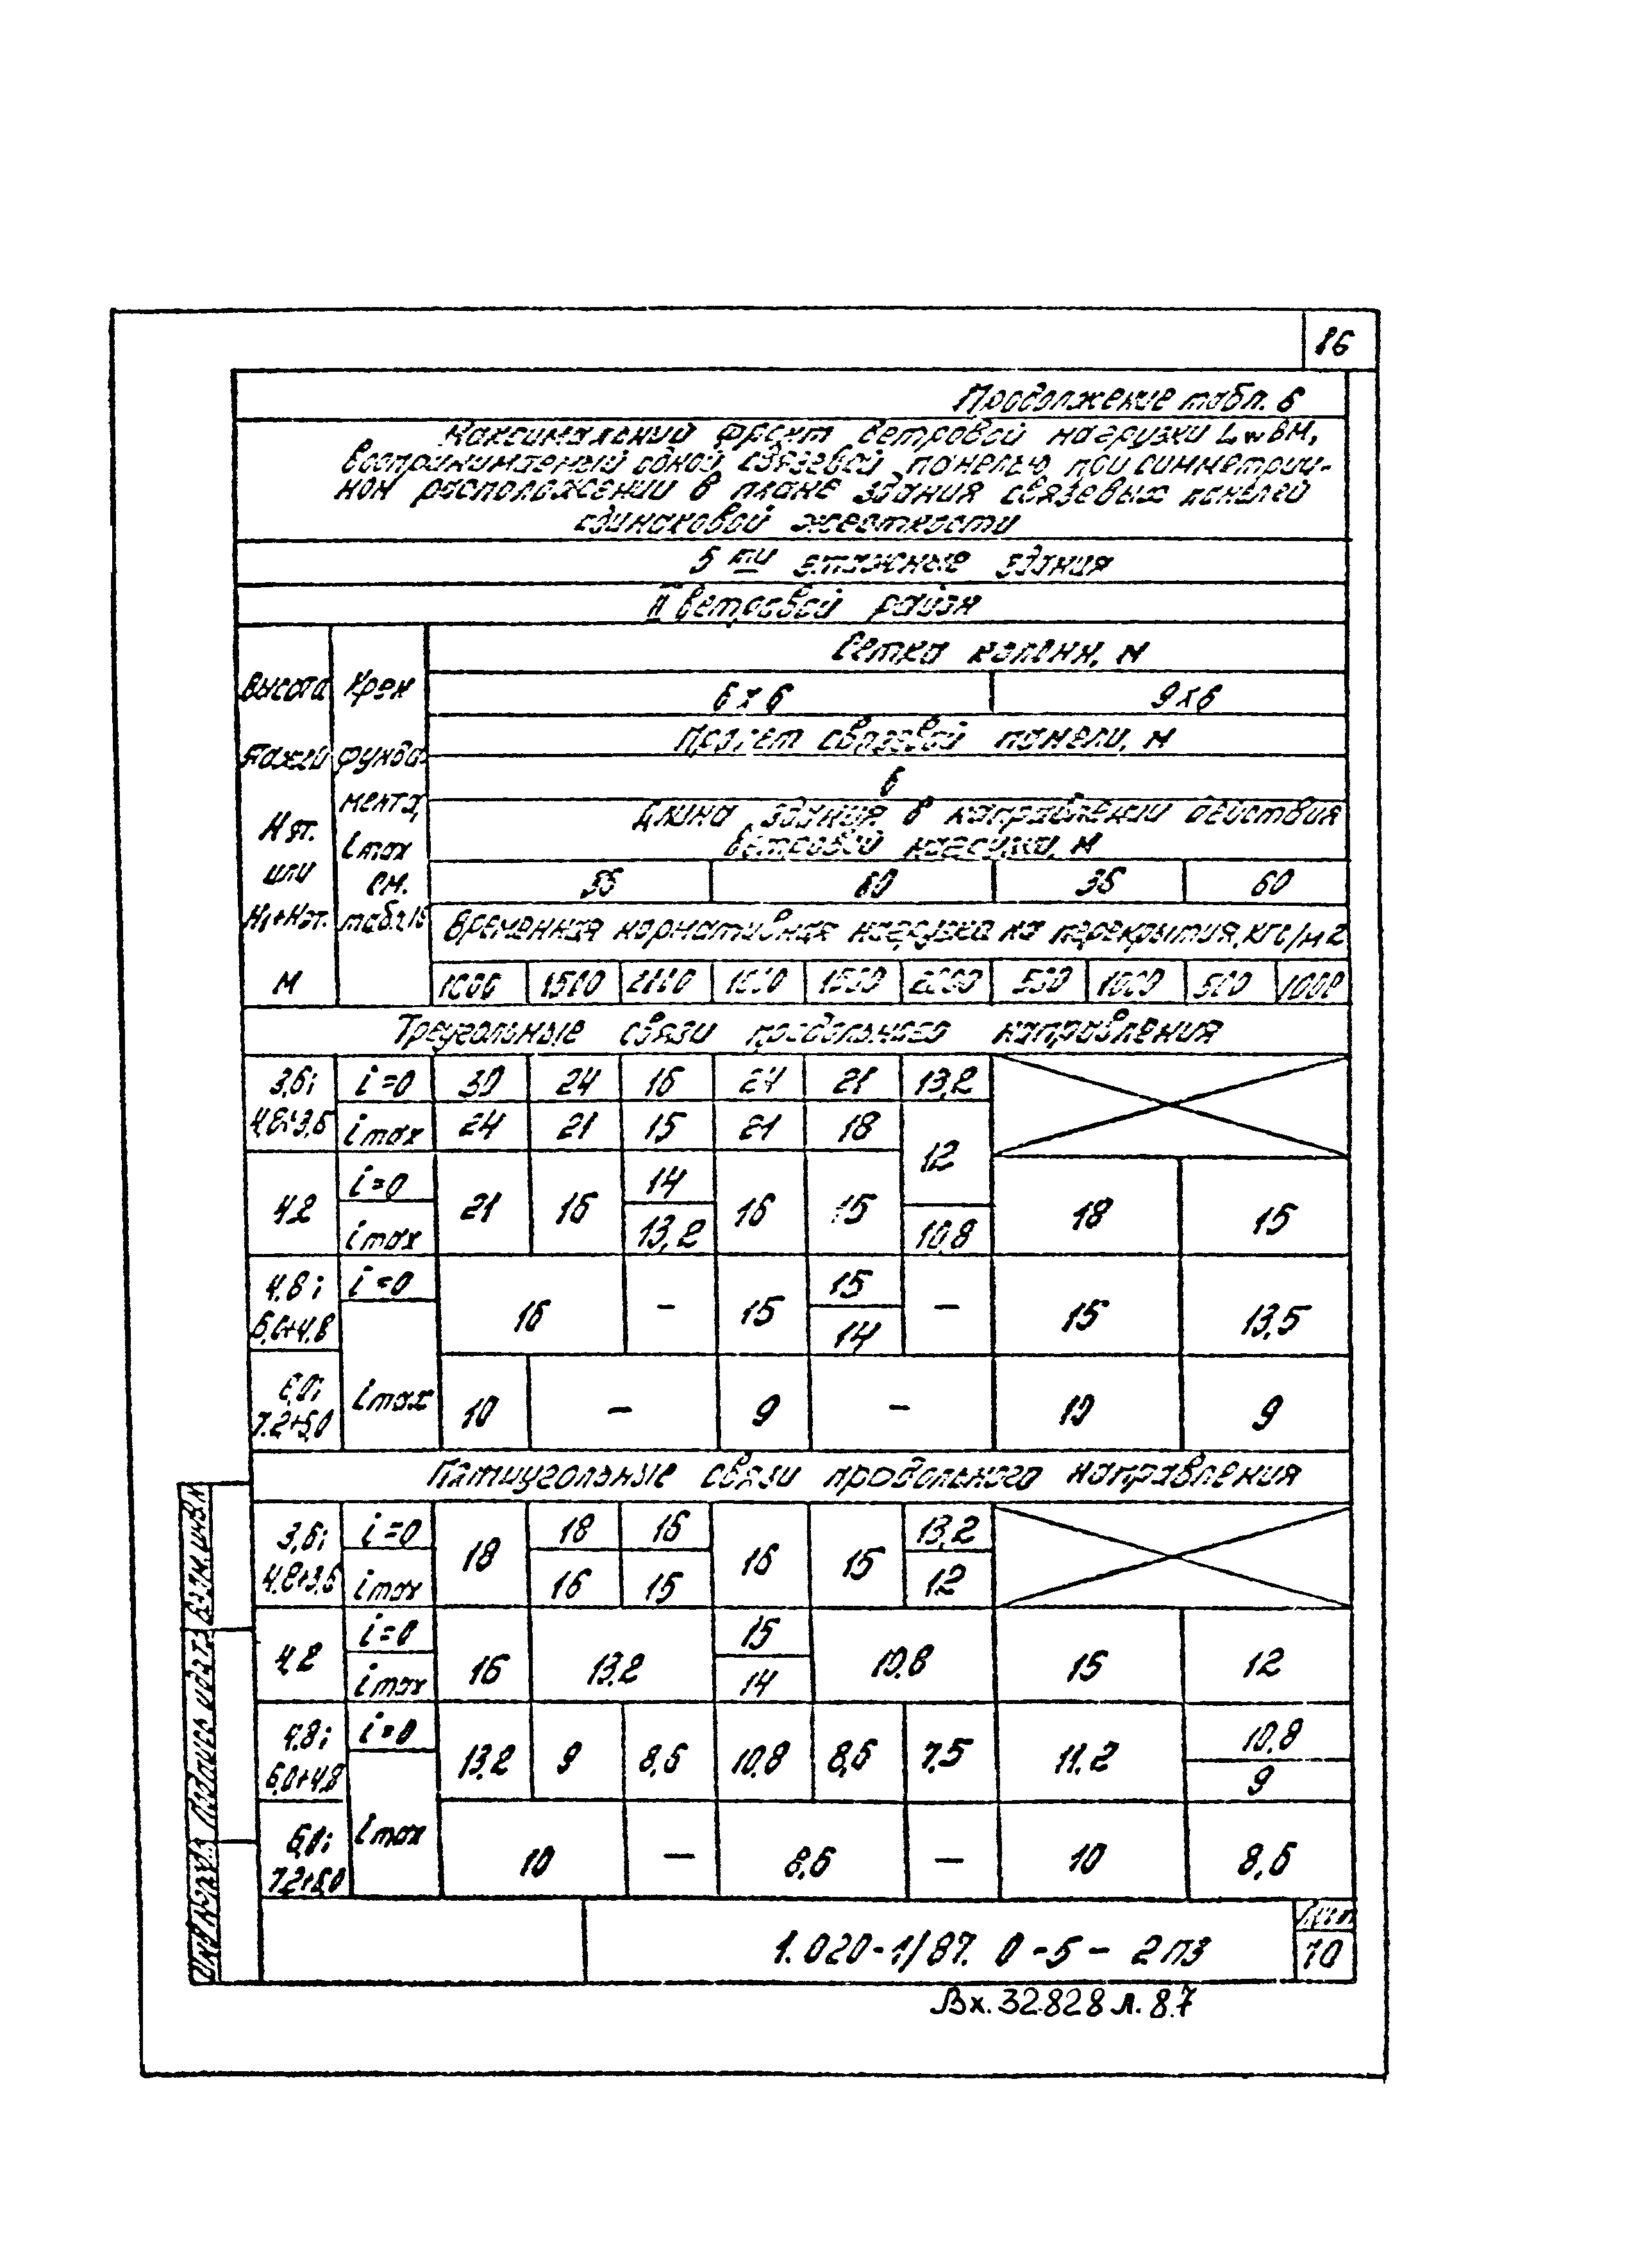 86
Продолжение табл. 6
Максимальный фронт ветровой нагрузки Lw в м,
воспринимаемый одной связевой панелью при симметрич-
ном расположении в плане здания связевых панелей
одинаковой жесткости
5 ти этажные здания
II ветровой район
Высота этажей Нэт. или Н1+Нэт. м
Крен фундамента, imax см. табл.15
Сетка колонн, м
6х6 9х6
Пролет связевой панели, м
6
Длина здания в направлении действия
ветровой нагрузки, м
60 60
Временная нормативная нагрузка на перекрытия, кгс/м2
1000 1500 2000 1000 1500 2000 500 1000 500 1000
Треугольные связи продольного направления
3,6; i=0 30 24 16 24 21 13,2
4,8+3,6 imax 24 21 15 21 18 12
4,2 i=0 21 16 14 16 15 18 15
imax 13,2 10,8
4,8; i=0 16 - 15 15 - 15 13,5
6,0+4,8 14
6,0; imax 10 - 9 - 10 9
7,2+6,0
Пятиугольные связи продольного направления
3,6; i=0 18 18 16 16 15 13,2
4,8+3,6 imax 16 15 12
4,2 i=0 16 13,2 15 10,8 15 12
imax 14
4,8; i=0 13,2 9 8,6 10,8 8,6 7,5 11,2 10,8
6,0+4,8 9
6,0; imax 10 - 8,6 - 10 8,6
7,2+6,0
Инв.№ подл. Подпись и дата Взам.инв.№
1.020-1/87. 0-5- 2ПЗ
Лист
10
Вх. 32828 л. 87